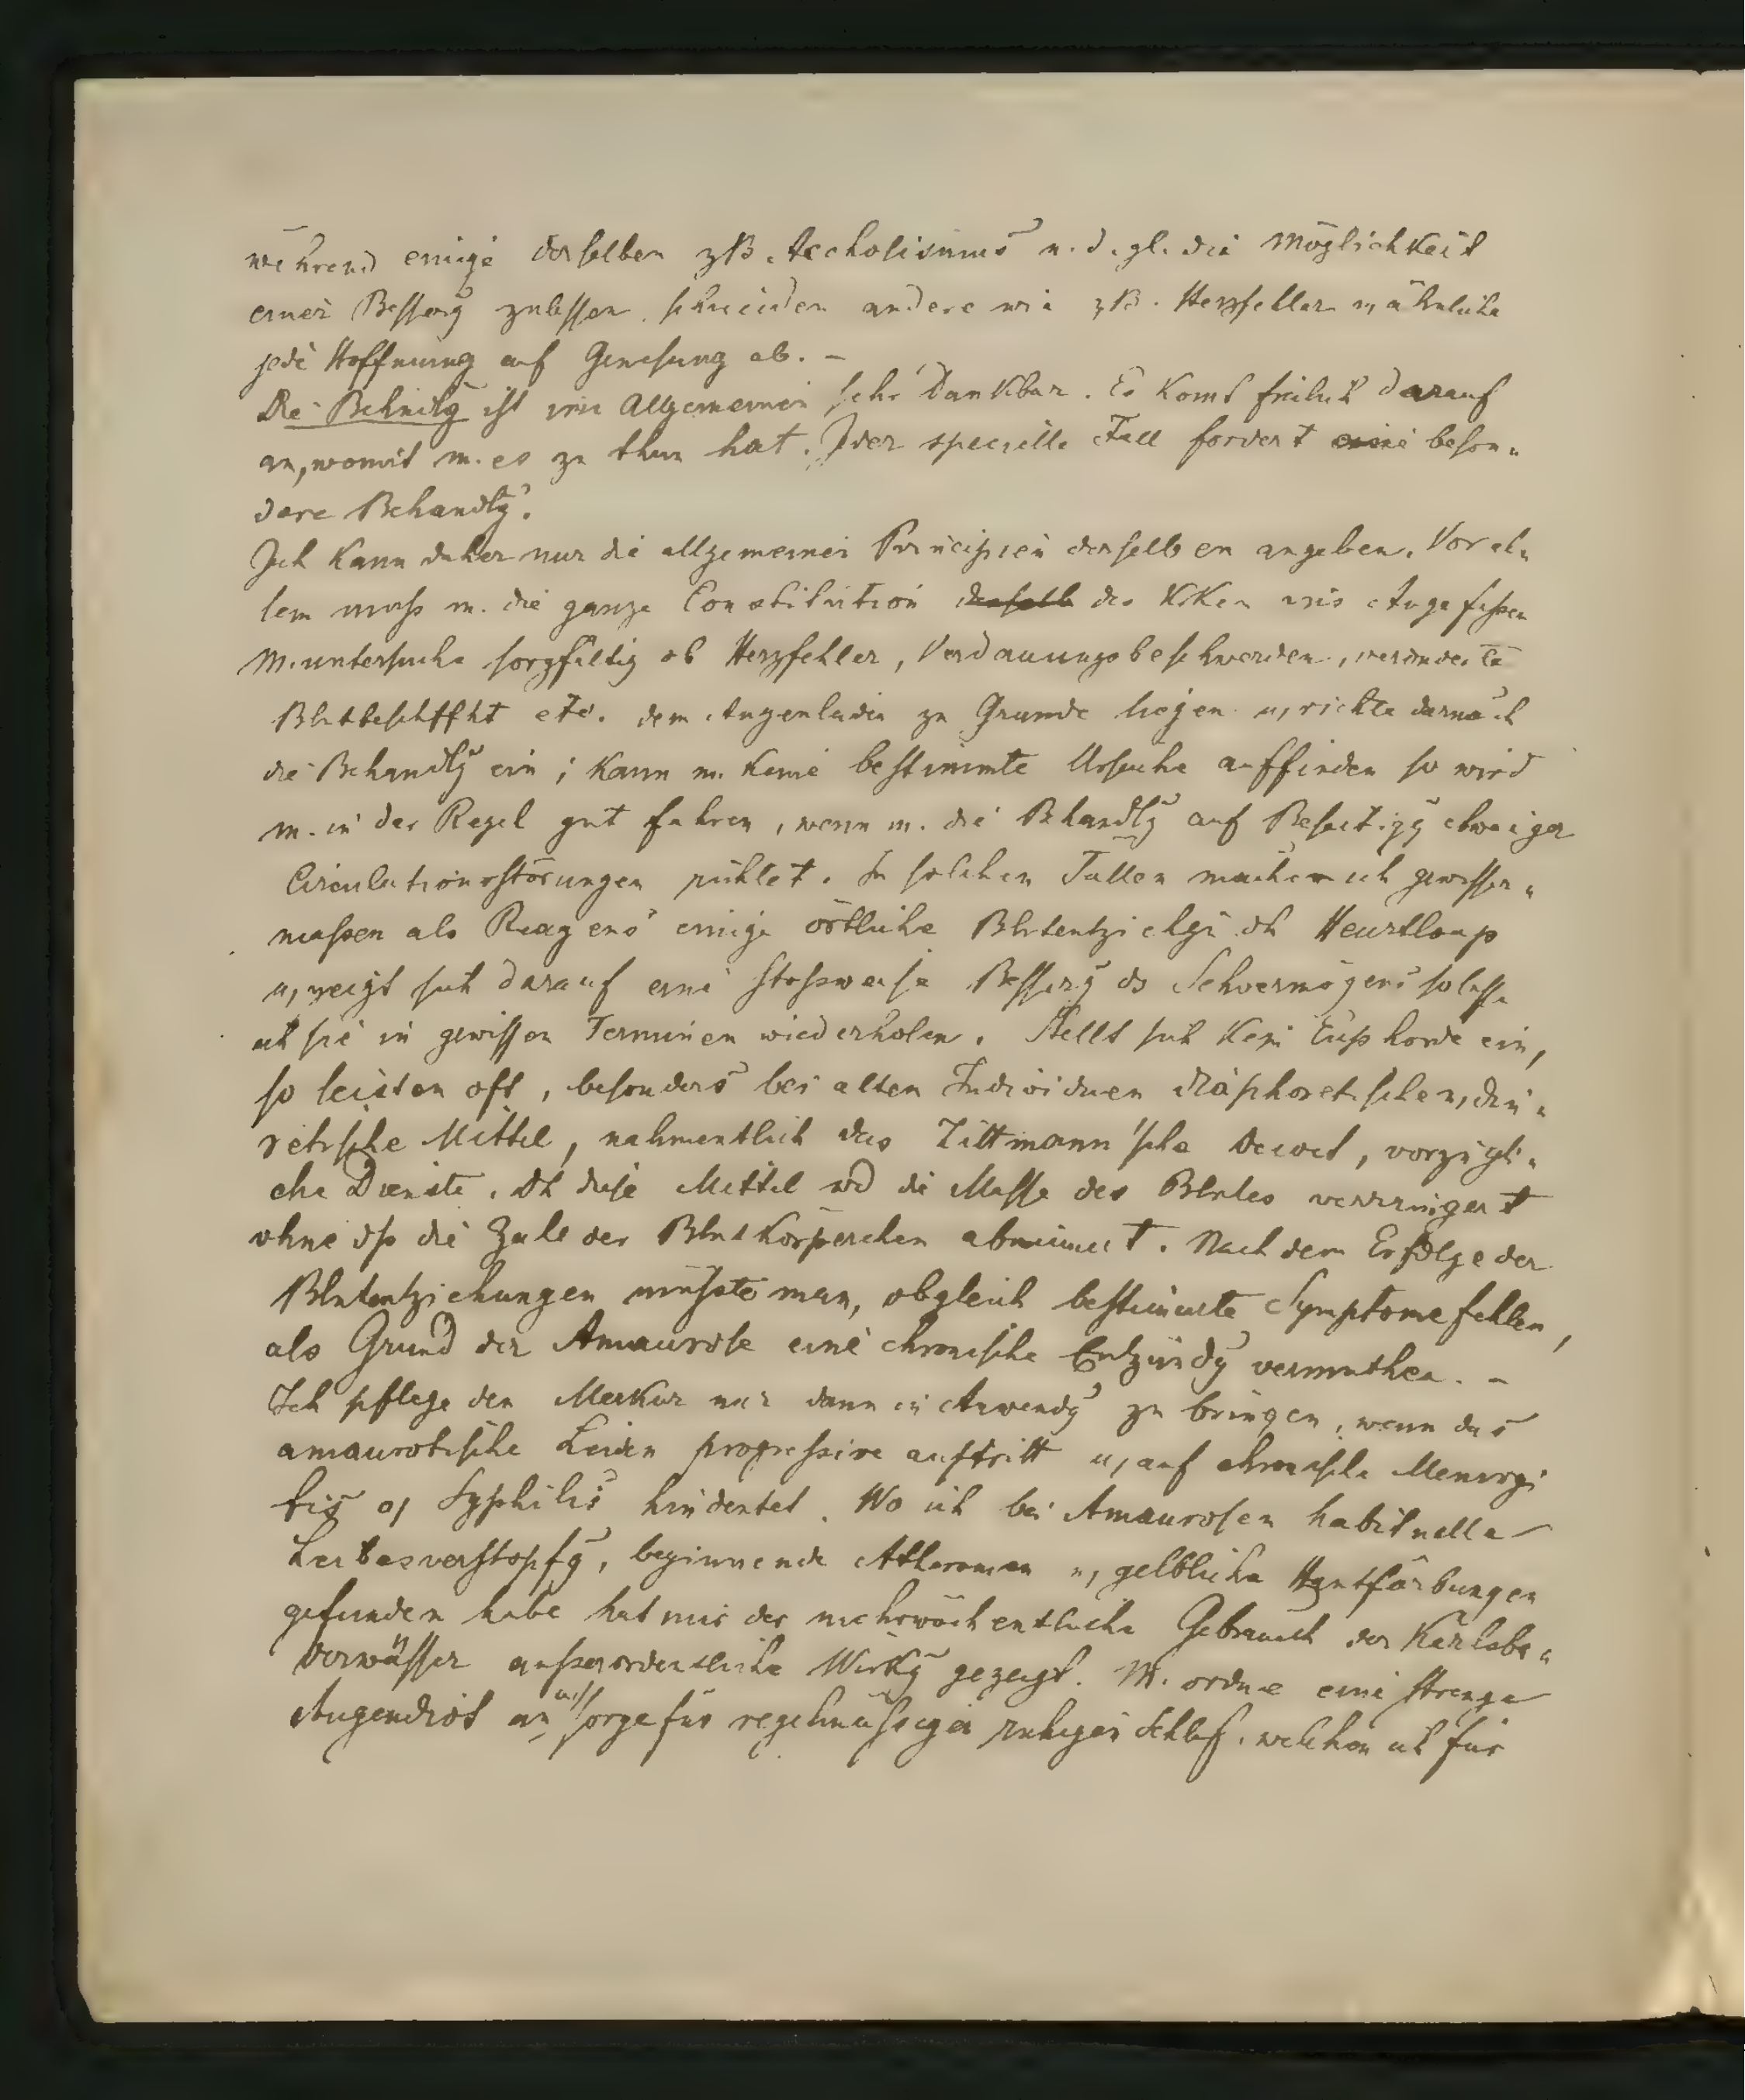 während einige derselben zB. Alcholismus u. d. gl. die Möglichkeit
einer Besserg zulassen, schneiden andere wie zB. Herzfehler u, ähnliche
jede Hoffnung auf Genesung ab. –
Die Behndlg ist im Allgemeinen sehr dankbar. Es komt freilich darauf
an, womit m. es zu thun hat. Jeder specielle Fall fordert eine beson„
dere Behandlg.
Ich kann daher nur die allgemeinen Principien derselben angeben. Vor al„
lem muss m. die ganze Constitution desselb des Kken ins Auge fassen
M. untersuche sorgfältig ob Herzfehler, Verdauungsbeschwerden, veränderte
Blutbeschffht etc. dem Augenleiden zu Grunde liegen u, richte darnach
die Behandlg ein; kann m. keine bestimmte Ursache auffinden so wird
m. in der Regel gut fahren, wenn m. die Behandlg auf Beseitigg etwaiger
Circulationsstörungen richtet. In solchen Fällen mache ich gewisser„
massen als Reagens einige örtliche Blutentziehgn dh Heurtloup
u, zeigt sich darauf eine stossweise Besserg ds Sehvermögens so lasse
ich sie in gewissen Terminen wiederholen. Stellt sich kein Euphorie ein,
so leisten oft, besonders bei alten Individuen diaphoretischen, diu„
retische Mittel, nahmentlich das Zittmann'sche Decoct, vorzügli„
che Dienste. Dh diese Mittel wd die Masse des Blutes verringert
ohne dss die Zahl der Blutkörperchen abnimmt. Nach dem Erfolge der
Blutentziehungen müsste man, obgleich bestimmte Symptome fehlen,
als Grund der Amaurose eine chronische Entzündg vermuthen. –
Ich pflege den Merkur nur dann in Anwendg zu bringen, wenn das
amaurotische Leiden progressive auftritt u, auf chronische Meningi
tis o, Syphilis hindeutet. Wo ich bei Amaurosen habituelle
Leibesverstopfg, beginnende Atheromen u, gelbliche Hautfärbungen
gefunden habe hat mir der mehrwöchentliche Gebrauch der Karlsba„
derwässer ausserordentliche Wirkg gezeigt. M. ordne eine strenge
Augendiät an u, sorge für regelmässigen ruhigen Schlaf, welchen ich für